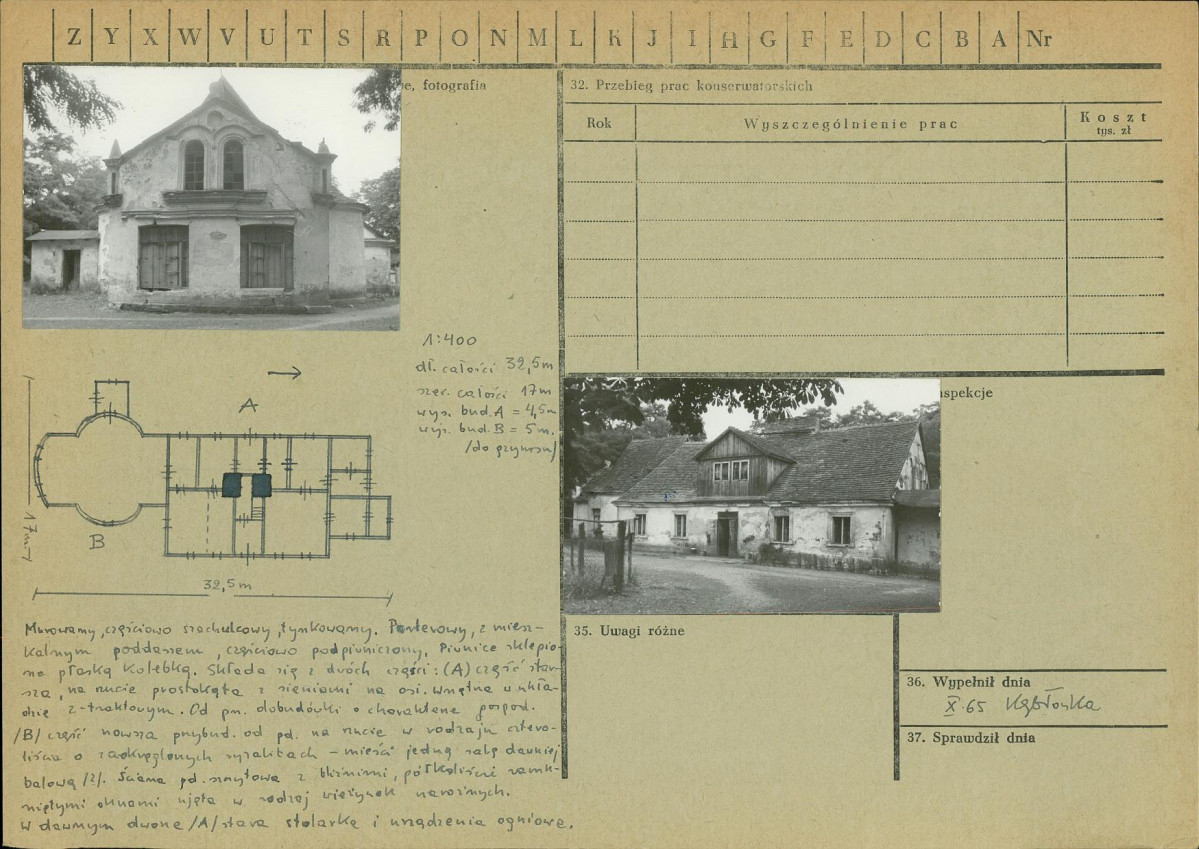 Z Y X W V U T S R P O N M L K J I H G F E D C B A Nr
e, fotografia
32. Przebieg prac konserwatorskich
Rok
Wyszczególnienie prac
Koszt
tys. zł
1:400
dł. całości 32,5m
szer. całości 17m
wys. bud. A = 4,5m
wys. bud. B = 5m.
/do gzymsu/
A
B
17m
32,5m
nspekcje
Murowany, częściowo szachulcowy, tynkowany. Parterowy, z miesz-
kalnym poddaszem, częściowo podpiwniczony. Piwnice sklepio-
ne płaską kolebką. Składa się z dwóch części: (A) część star-
sza, na rzucie prostokąta z sieniami na osi. Wnętrza w ukła-
dzie 2-traktowym. Od pn. dobudówki o charakterze gospod.
/B/ część nowsza przybud. od pd. na rzucie w rodzaju cztero-
liścia o zaokrąglonych ryzalitach - mieści jedną salę dawniej
balową /?/. Ściana pd. szczytowa z bliźnimi, półkoliście zamk-
niętymi oknami ujęta w rodzaj wieżyczek narożnych.
W dawnym dworze /A/ stara stolarka i urządzenia ogniowe.
35. Uwagi różne
36. Wypełnił dnia
X.65
37. Sprawdził dnia